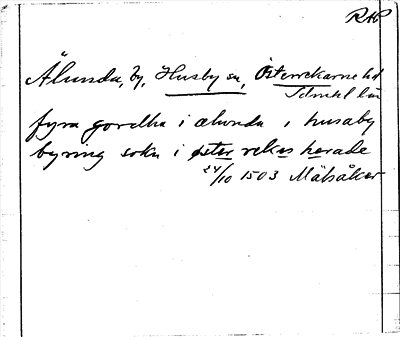 RAP
Ålunda, by, Husby sn, Österrekarne hd
Södml län
fyra gordha i alunda i husaby
byring sokn i øster rekes herade
24/10 1503 Mälsåker